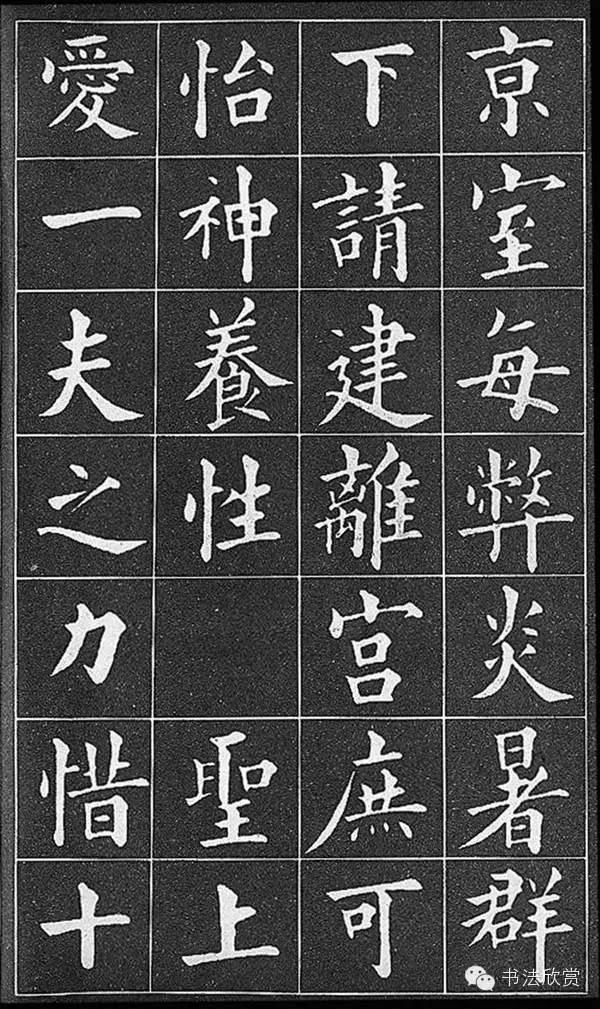 京室每弊炎暑群
下請建離宮庶可
怡神養性 聖上
愛一夫之力惜十
书法欣赏